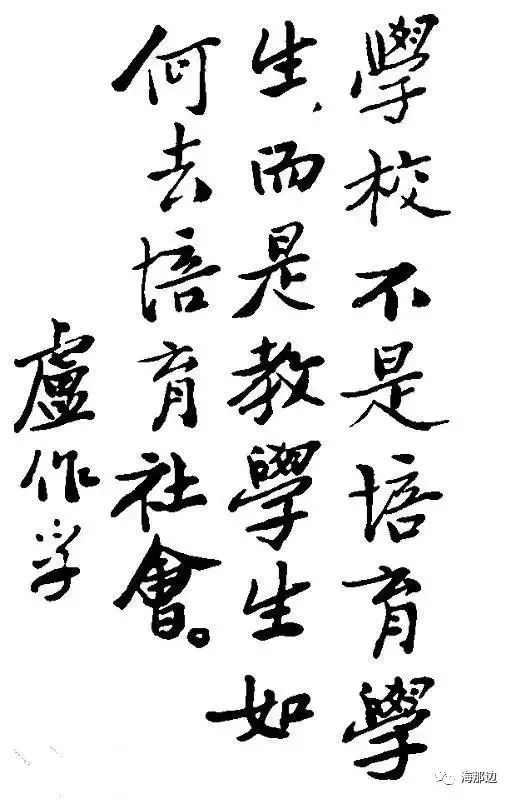 學校不是培育學
生,而是教學生如
何去培育社會。
盧作孚
海那边